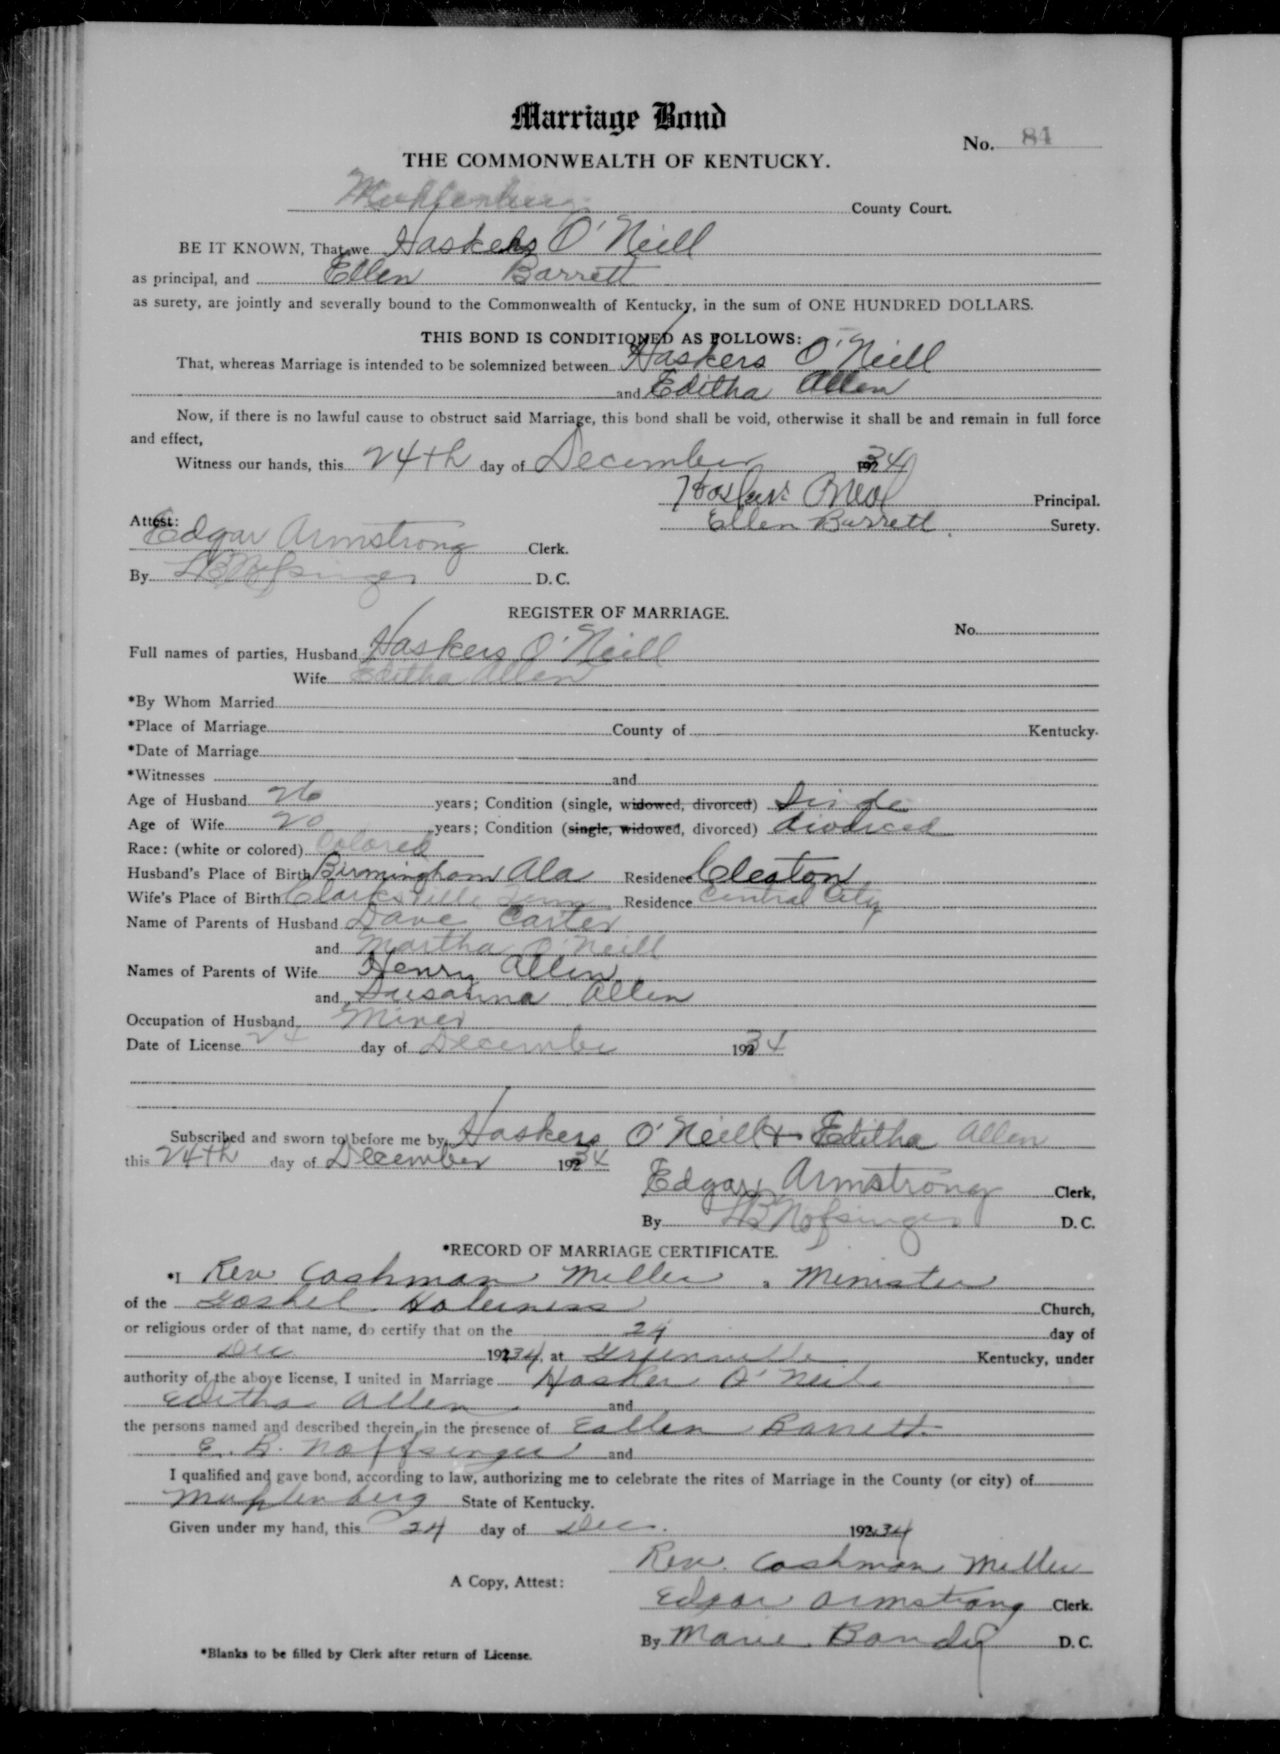 Marriage Bond
No. 84
THE COMMONWEALTH OF KENTUCKY.
Muhlenberg County Court.
BE IT KNOWN, That we Haskers O'Neill
as principal, and Ellen Barrett
as surety, are jointly and severally bound to the Commonwealth of Kentucky, in the sum of ONE HUNDRED DOLLARS.
THIS BOND IS CONDITIONED AS FOLLOWS:
That, whereas Marriage is intended to be solemnized between Haskers O'Neill
and Editha Allen
Now, if there is no lawful cause to obstruct said Marriage, this bond shall be void, otherwise it shall be and remain in full force
and effect,
Witness our hands, this 24th day of December 1934
Oneal Principal.
Attest: Ellen Barrett Surety.
Edgar Armstrong Clerk.
By Nofsinger D. C.
REGISTER OF MARRIAGE.
No.
Full names of parties, Husband Haskers O'Neill
Wife Editha Allen
*By Whom Married
*Place of Marriage County of Kentucky.
*Date of Marriage
*Witnesses and
Age of Husband 26 years; Condition (single, widowed, divorced) Single
Age of Wife 20 years; Condition (single, widowed, divorced) divorced
Race: (white or colored) Colored
Husband's Place of Birth Birmingham Ala Residence Cleaton
Wife's Place of Birth Clarksville Tenn Residence Central City
Name of Parents of Husband Dave Carter
and Martha O'Neill
Names of Parents of Wife Henry Allen
and Susanna Allen
Occupation of Husband Miner
Date of License 24 day of December 1934
Subscribed and sworn to before me by Haskers O'Neill + Editha Allen
this 24th day of December 1934
Edgar Armstrong Clerk,
By Nofsinger D. C.
*RECORD OF MARRIAGE CERTIFICATE.
*I Rev Cashman Miller, Minister
of the Goshel Holerness Church,
or religious order of that name, do certify that on the 24 day of
Dec 1934, at Greenville Kentucky, under
authority of the above license, I united in Marriage Hasker O'Neil
Editha Allen and
the persons named and described therein, in the presence of Eallen Barrett
E. B. Noffsinger and
I qualified and gave bond, according to law, authorizing me to celebrate the rites of Marriage in the County (or city) of
Muhlenberg State of Kentucky.
Given under my hand, this 24 day of Dec. 1934
Rev. Cashman Miller
A Copy, Attest:
Edgar Armstrong Clerk.
By Marie Bandy D. C.
*Blanks to be filled by Clerk after return of License.